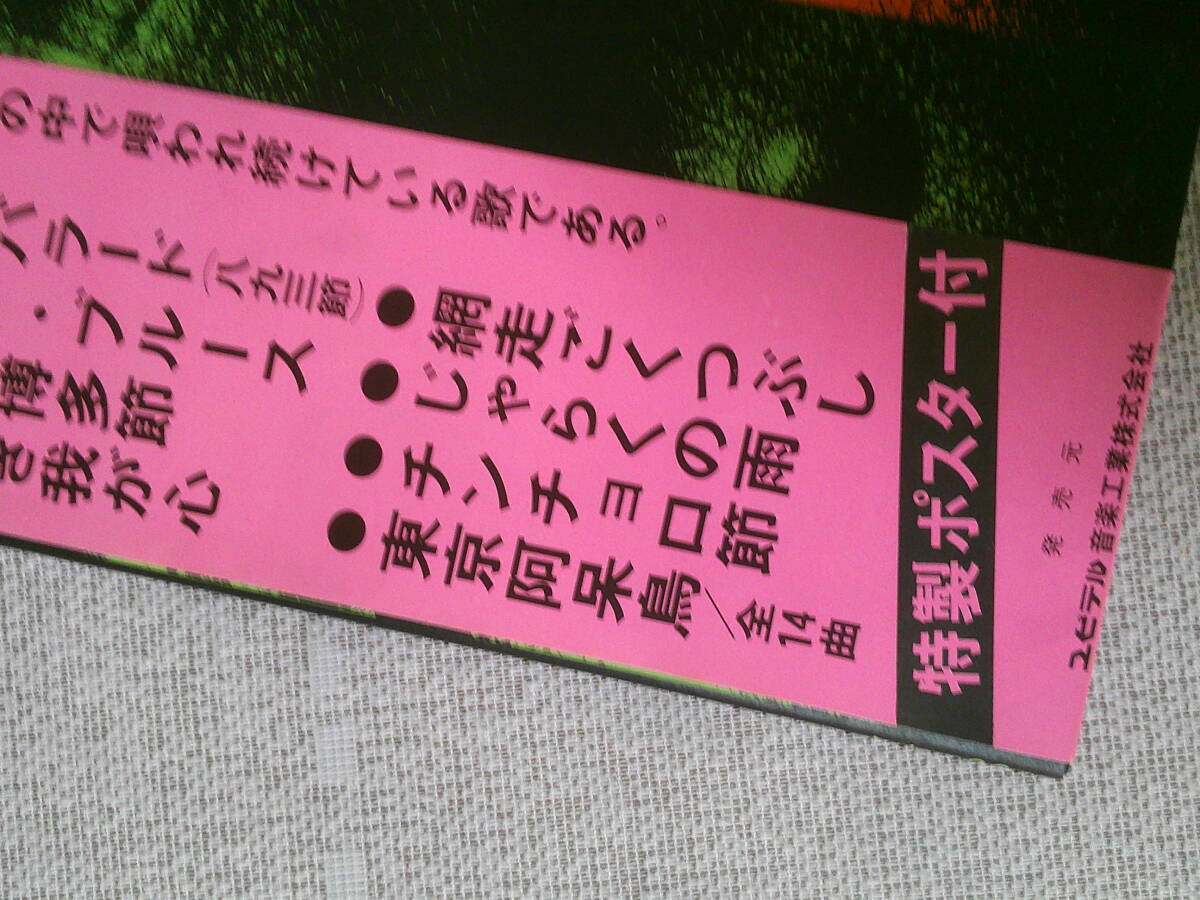 の中で唄われ続けている歌である。
バラード(八九三節)
・ブルース
博多節
き我が心
●網走ごくつぶし
●じゃらくの雨
●チンチョロ節
●東京阿呆鳥/全14曲
特製ポスター付
発売元
ユピテル音楽工業株式会社